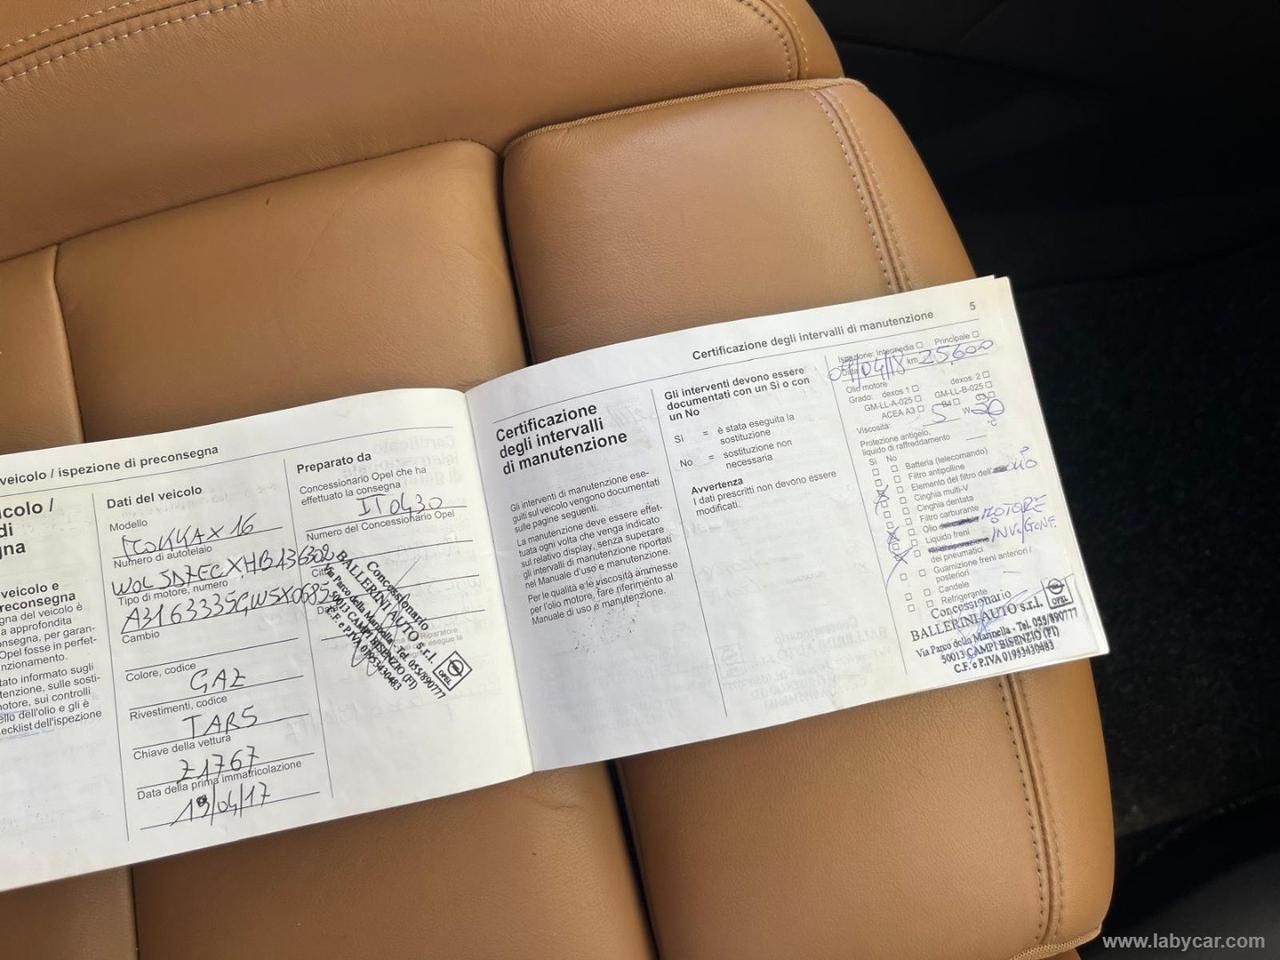 veicolo / ispezione di preconsegna
icolo /
di
gna
veicolo e
reconsegna
gna del veicolo è
a approfondita
nsegna, per garan-
Opel fosse in perfet-
nzionamento.
tato informato sugli
tenzione, sulle sosti-
notore, sui controlli
ello dell'olio e gli è
ecklist dell'ispezione
Dati del veicolo
Modello
MOKKA X 16
Numero di autotelaio
Tipo di motore, numero
Cambio
Colore, codice
GAZ
Rivestimenti, codice
TAR5
Chiave della vettura
Z1767
Data della prima immatricolazione
19/04/17
Preparato da
Concessionario Opel che ha
effettuato la consegna
IT0430
Numero del Concessionario Opel
Concessionario
BALLERINI AUTO s.r.l.
Via Parco della Marinella - Tel. 055/890777
50013 CAMPI BISENZIO (FI)
C.F. e P.IVA 01953430483
OPEL
Certificazione degli intervalli di manutenzione
5
Certificazione
degli intervalli
di manutenzione
Gli interventi di manutenzione ese-
guiti sul veicolo vengono documentati
sulle pagine seguenti.
La manutenzione deve essere effet-
tuata ogni volta che venga indicato
sul relativo display, senza superare
gli intervalli di manutenzione riportati
nel Manuale d'uso e manutenzione.
Per le qualità e le viscosità ammesse
per l'olio motore, fare riferimento al
Manuale di uso e manutenzione.
Gli interventi devono essere
documentati con un Sì o con
un No
Sì = è stata eseguita la
sostituzione
No = sostituzione non
necessaria
Avvertenza
I dati prescritti non devono essere
modificati.
Ispezione: Intermedia Principale
Data 07/04/18 km 25600
Olio motore
Grado: dexos 1 dexos 2
GM-LL-A-025 GM-LL-B-025
ACEA A3 B4 C3
Viscosità: 5 W 30
Protezione antigelo,
liquido di raffreddamento °C
Sì No
Batteria (telecomando)
Filtro antipolline
Elemento del filtro dell' olio
Cinghia multi-V
Cinghia dentata
Filtro carburante
Olio MOTORE
Liquido freni INV./GONF.
dei pneumatici
Guarnizione freni anteriori /
posteriori
Candele
Refrigerante
Concessionario
BALLERINI AUTO s.r.l.
Via Parco della Marinella - Tel. 055/890777
50013 CAMPI BISENZIO (FI)
C.F. e P.IVA 01953430483
OPEL
www.labycar.com